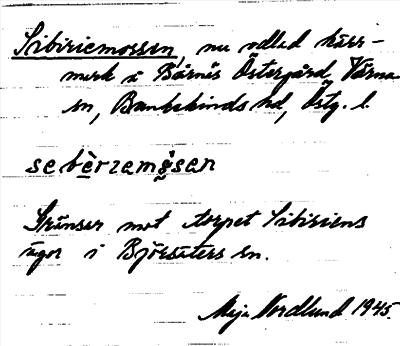 Sibiriemossen, nu odlad kärr-
mark å Bärnäs Östergård, Värna
sn, Bankekinds hd, Östg. l.
sebèrıemo̤sen
Gränsar mot torpet Sibiriens
ägor i Björsäters sn.
Maja Nordlund 1945.